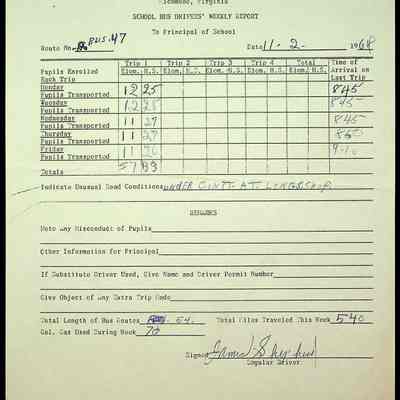 Richmond, Virginia
SCHOOL BUS DRIVERS' WEEKLY REPORT
To Principal of School
Route No. BUS. 47 Date 11-2- 1968
Trip 1 Trip 2 Trip 3 Trip 4 Total Time of
Pupils Enrolled Elem. H.S. Elem. H.S. Elem. H.S. Elem. H.S. Elem. H.S. Arrival on
Each Trip Last Trip
Monday
Pupils Transported 12 25 845
Tuesday
Pupils Transported 12 25 845
Wednesday
Pupils Transported 11 27 845
Thursday
Pupils Transported 11 27 850
Friday
Pupils Transported 11
Totals 57
Indicate Unusual Road Conditions UNDER CONT. AT
REMARKS
Note Any Misconduct of Pupils
Other Information for Principal
If Substitute Driver Used, Give Name and Driver Permit Number
Give Object of Any Extra Trip Made
Total Length of Bus Routes 54. Total Miles Traveled This Week 540
Gal. Gas Used During Week 70
Signed James Shepherd
Regular Driver